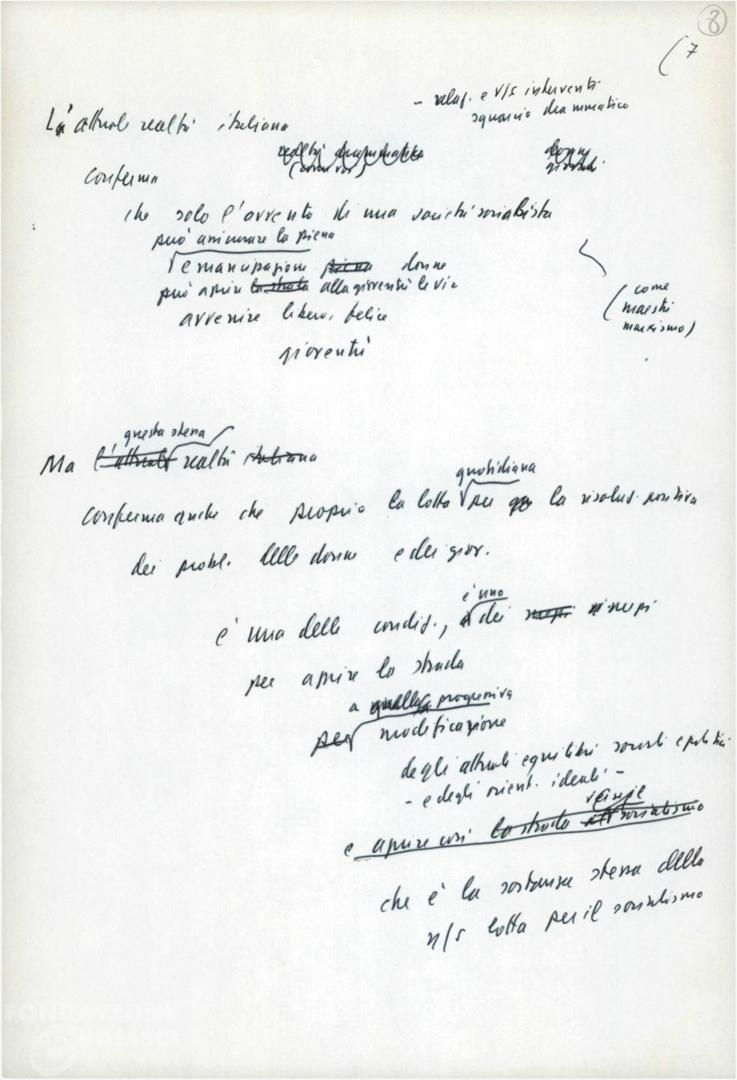 8
( 7
- relaz. e v/s interventi
squarcio drammatico
L'attuale realtà italiana
realtà drammatica donne
giovani
conferma
che solo l'avvento di una società socialista
può assicurare la piena
emancipazione piena donne
può aprire la strada alla gioventù la via
avvenire libero, felice
gioventù
( come
maestri
marxismo)
questa stessa
Ma l'attuale realtà italiana
quotidiana
conferma anche che proprio la lotta per la risoluz. positiva
dei probl. delle donne e dei giov.
è uno
è una delle condiz., dei
per aprire la strada
a progressiva
per modificazione
degli attuali equilibri sociali e politici
- e degli orient. ideali -
verso il
e aprire così la strada al socialismo
che è la sostanza stessa della
n/s lotta per il socialismo
FONDAZIONE